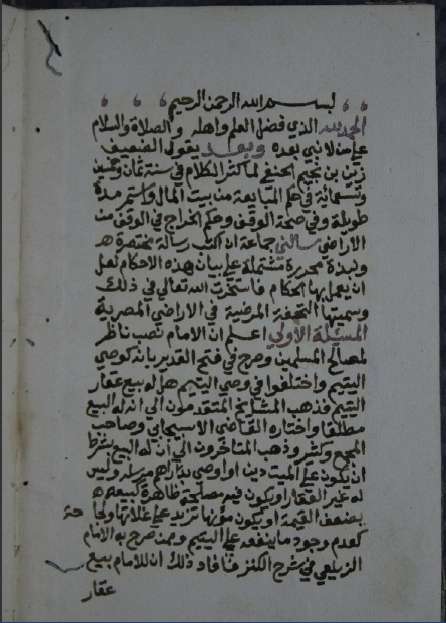 بسم الله الرحمن الرحيم
الحمد لله الذي فضل العلم واهله والصلاة والسلام
على من لا نبي بعده وبعد يقول الضعيف
زين بن نجيم الحنفي لما كثر الكلام في سنة ثمان وخمسين
وتسمائة في حكم المبايعة من بيت المال واستمر مدة
طويلة وفي صحة الوقف وحكم الخراج في الوقف من
الاراضي سالني جماعة ان اكتب رسالة مختصرة
ونبذة محررة مشتملة على بيان هذه الاحكام لعل
ان يعمل بها الحكام فاستخرت الله تعالى في ذلك
وسميتها التحفة المرضية في الاراضي المصرية
المسئلة الاولى اعلم ان الامام نصب ناظر
لمصالح المسلمين وصرح في فتح القدير بانه كوصي
اليتيم واختلفوا في وصي اليتيم هل له بيع عقار
اليتيم فذهب المشايخ المتقدمون الى ان له البيع
مطلقا واختاره القاضي الاسبيجابي وصاحب
المجمع وكثير وذهب المتاخرون الى ان له البيع بشرط
ان يكون على الميت دين او اوصى بدراهم مرسلة وليس
له غير العقار او يكون فيه مصلحة ظاهرة كبيعه
بضعف القيمة او يكون مؤنها تزيد على غلاتها او لحاجة
كعدم وجود ما ينفقه على اليتيم وممن صرح به الامام
الزيلعي في شرح الكنز فافاد ذلك ان للامام بيع
عقار